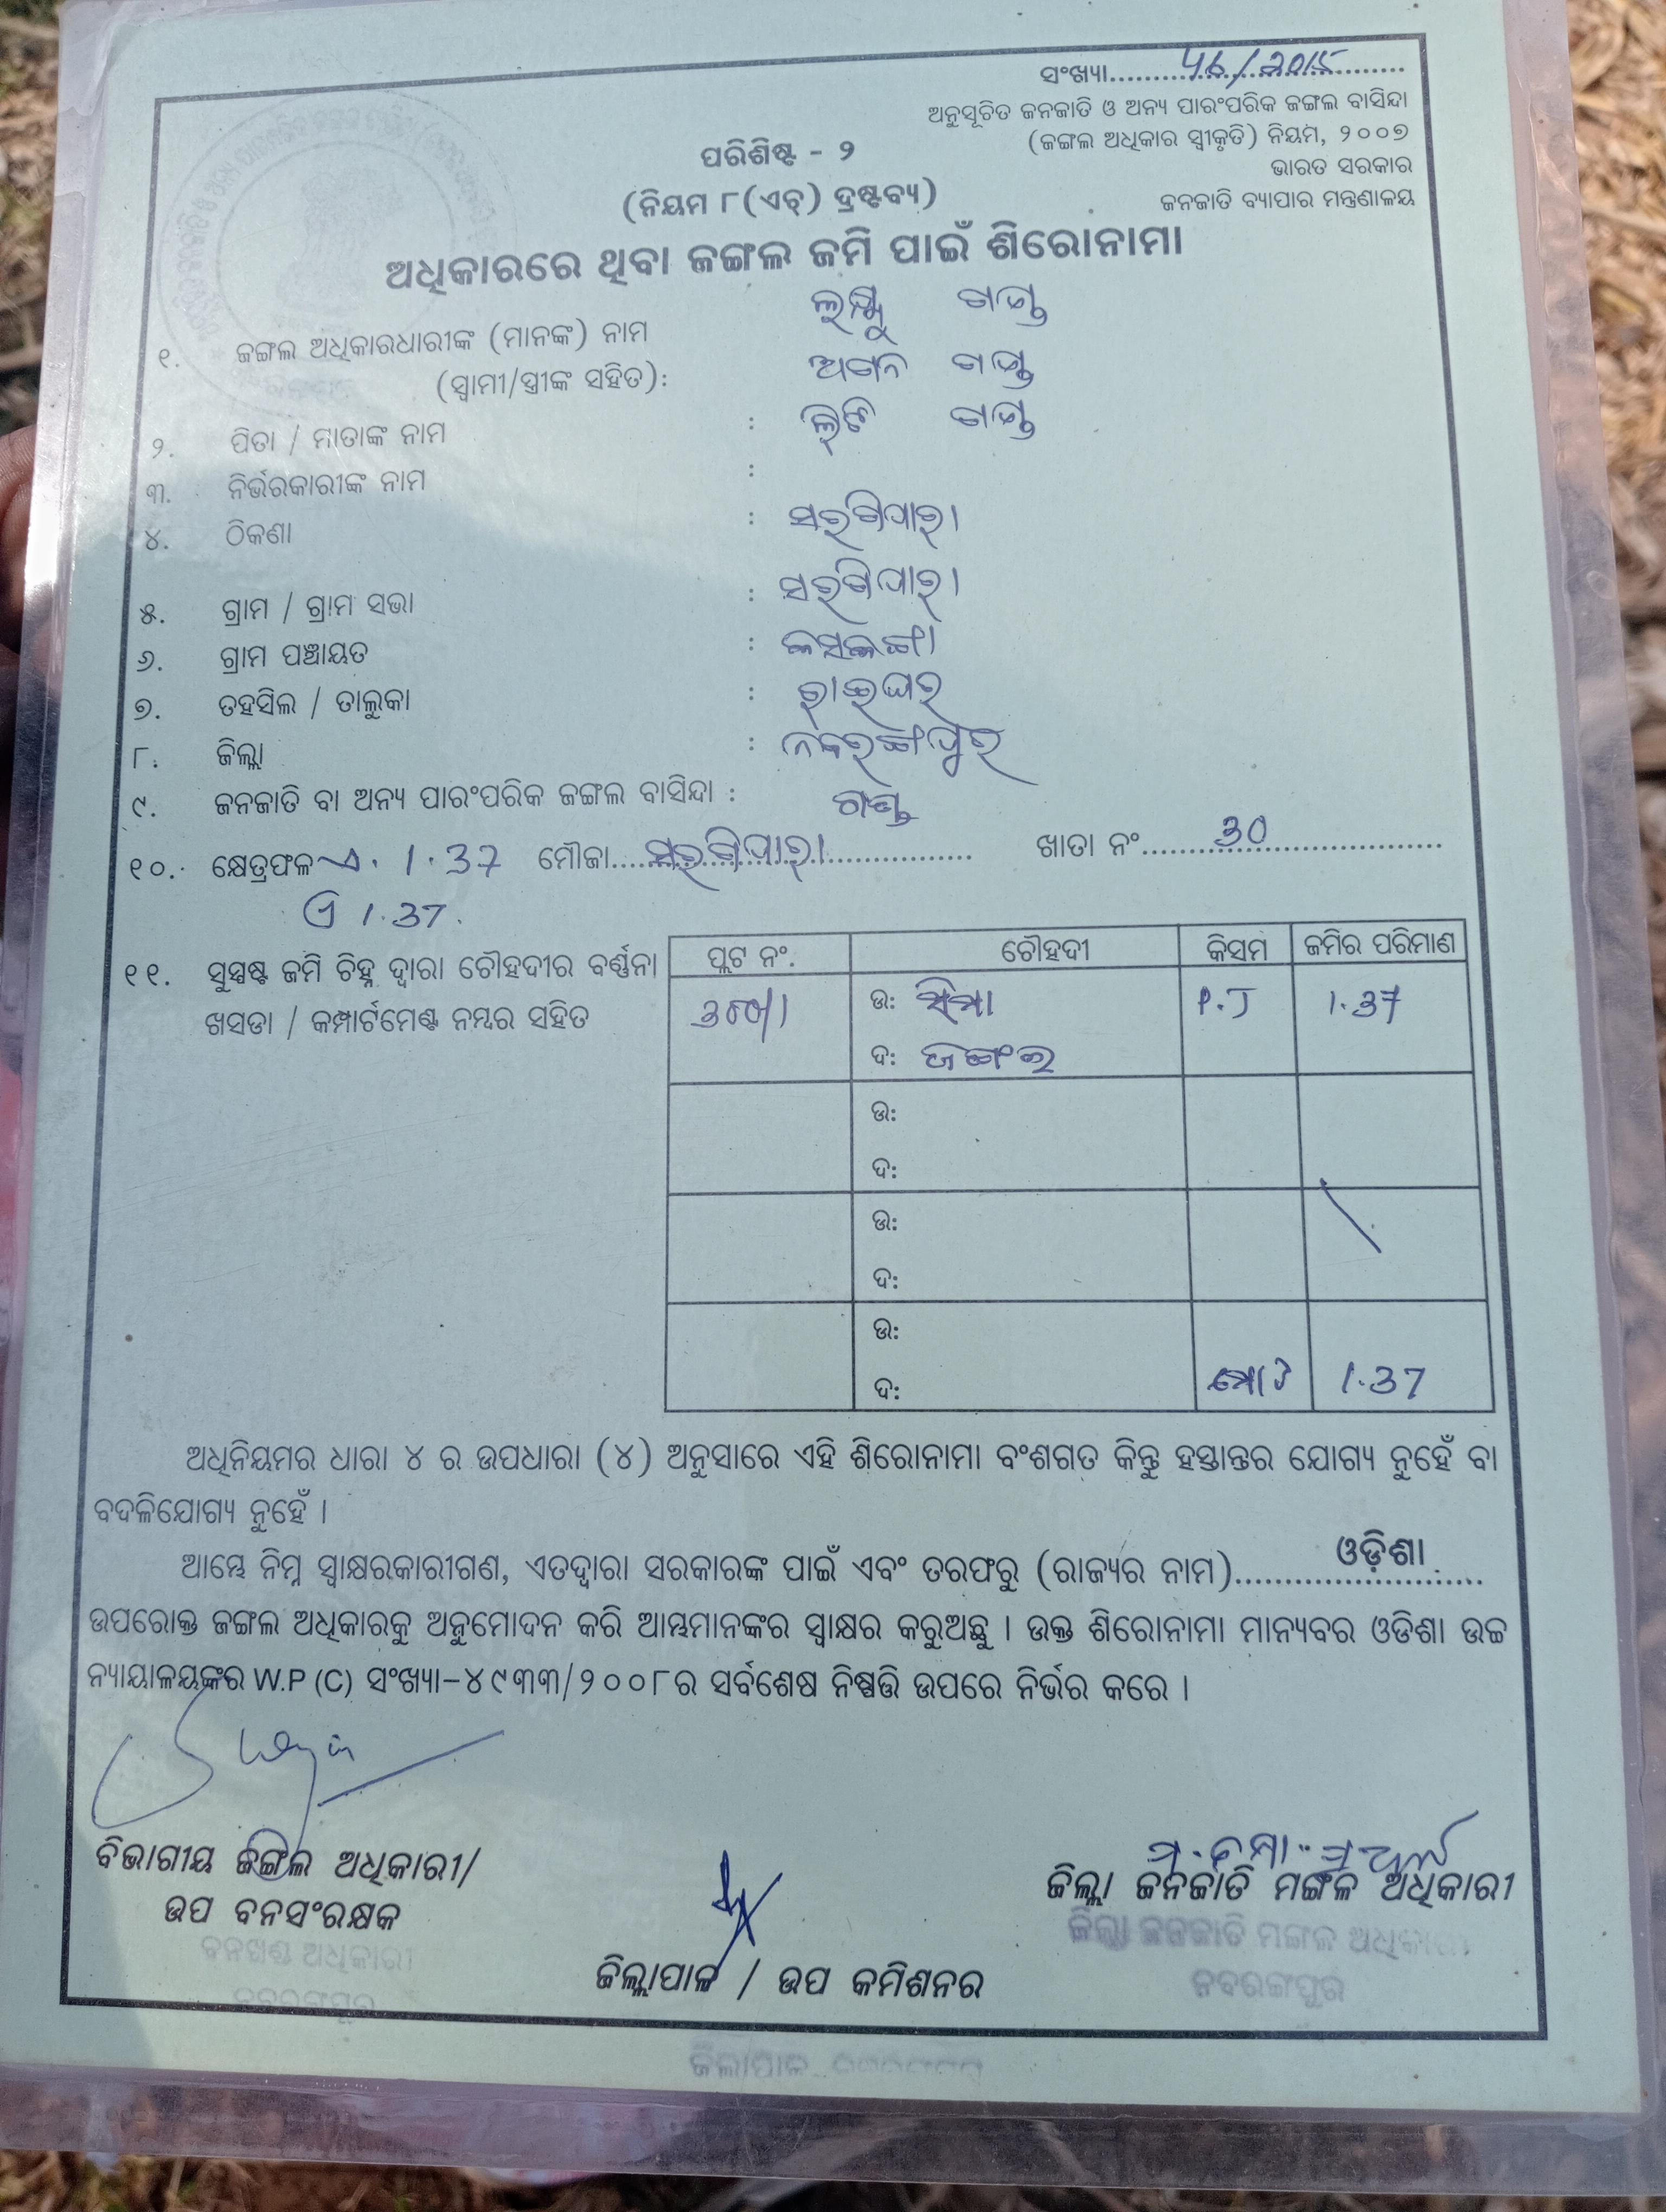 ସଂଖ୍ୟା.....46/2015.....
ଅନୁସୂଚିତ ଜନଜାତି ଓ ଅନ୍ୟ ପାରଂପରିକ ଜଙ୍ଗଲ ବାସିନ୍ଦା
(ଜଙ୍ଗଲ ଅଧିକାର ସ୍ୱୀକୃତି) ନିୟମ, ୨୦୦୭
ଭାରତ ସରକାର
ଜନଜାତି ବ୍ୟାପାର ମନ୍ତ୍ରଣାଳୟ
ପରିଶିଷ୍ଟ - ୨
(ନିୟମ ୮(ଏଚ୍) ଦ୍ରଷ୍ଟବ୍ୟ)
ଅଧିକାରରେ ଥିବା ଜଙ୍ଗଲ ଜମି ପାଇଁ ଶିରୋନାମା
୧. ଜଙ୍ଗଲ ଅଧିକାରଧାରୀଙ୍କ (ମାନଙ୍କ) ନାମ ଗଣ୍ଡ
(ସ୍ୱାମୀ/ସ୍ତ୍ରୀଙ୍କ ସହିତ): ଅଗନ ଗଣ୍ଡ
୨. ପିତା / ମାତାଙ୍କ ନାମ : ଗଣ୍ଡ
୩. ନିର୍ଭରକାରୀଙ୍କ ନାମ :
୪. ଠିକଣା : ସରଗିପାରା
୫. ଗ୍ରାମ / ଗ୍ରାମ ସଭା : ସରଗିପାରା
୬. ଗ୍ରାମ ପଞ୍ଚାୟତ :
୭. ତହସିଲ / ତାଲୁକା : ରାଇଘର
୮. ଜିଲ୍ଲା : ନବରଙ୍ଗପୁର
୯. ଜନଜାତି ବା ଅନ୍ୟ ପାରଂପରିକ ଜଙ୍ଗଲ ବାସିନ୍ଦା : ଗଣ୍ଡ
୧୦. କ୍ଷେତ୍ରଫଳ 1.37 ମୌଜା.....ସରଗିପାରା..... ଖାତା ନଂ.....30.....
ଏ 1.37.
୧୧. ସୁସ୍ପଷ୍ଟ ଜମି ଚିହ୍ନ ଦ୍ୱାରା ଚୌହଦୀର ବର୍ଣ୍ଣନା
ଖସଡା / କମ୍ପାର୍ଟମେଣ୍ଟ ନମ୍ବର ସହିତ
ପ୍ଲଟ ନଂ. ଚୌହଦୀ କିସମ ଜମିର ପରିମାଣ
ଉ: ସିମା P.J 1.37
ଦ: ଜଙ୍ଗଲ
ଉ:
ଦ:
ଉ:
ଦ:
ଉ:
ଦ: ମୋଟ 1.37
ଅଧିନିୟମର ଧାରା ୪ ର ଉପଧାରା (୪) ଅନୁସାରେ ଏହି ଶିରୋନାମା ବଂଶଗତ କିନ୍ତୁ ହସ୍ତାନ୍ତର ଯୋଗ୍ୟ ନୁହେଁ ବା
ବଦଳିଯୋଗ୍ୟ ନୁହେଁ ।
ଆମ୍ଭେ ନିମ୍ନ ସ୍ୱାକ୍ଷରକାରୀଗଣ, ଏତଦ୍ୱାରା ସରକାରଙ୍କ ପାଇଁ ଏବଂ ତରଫରୁ (ରାଜ୍ୟର ନାମ).....ଓଡ଼ିଶା.....
ଉପରୋକ୍ତ ଜଙ୍ଗଲ ଅଧିକାରକୁ ଅନୁମୋଦନ କରି ଆମ୍ଭମାନଙ୍କର ସ୍ୱାକ୍ଷର କରୁଅଛୁ । ଉକ୍ତ ଶିରୋନାମା ମାନ୍ୟବର ଓଡିଶା ଉଚ୍ଚ
ନ୍ୟାୟାଳୟଙ୍କର W.P (C) ସଂଖ୍ୟା-୪୯୩୩/୨୦୦୮ର ସର୍ବଶେଷ ନିଷ୍ପତ୍ତି ଉପରେ ନିର୍ଭର କରେ ।
ବିଭାଗୀୟ ଜଙ୍ଗଲ ଅଧିକାରୀ/
ଉପ ବନସଂରକ୍ଷକ
ବନଖଣ୍ଡ ଅଧିକାରୀ
ନବରଙ୍ଗପୁର
ଜିଲ୍ଲାପାଳ / ଉପ କମିଶନର
ଜିଲ୍ଲା ଜନଜାତି ମଙ୍ଗଳ ଅଧିକାରୀ
ଜିଲ୍ଲା ଜନଜାତି ମଙ୍ଗଳ ଅଧିକାରୀ
ନବରଙ୍ଗପୁର
ଜିଲାପାଳ